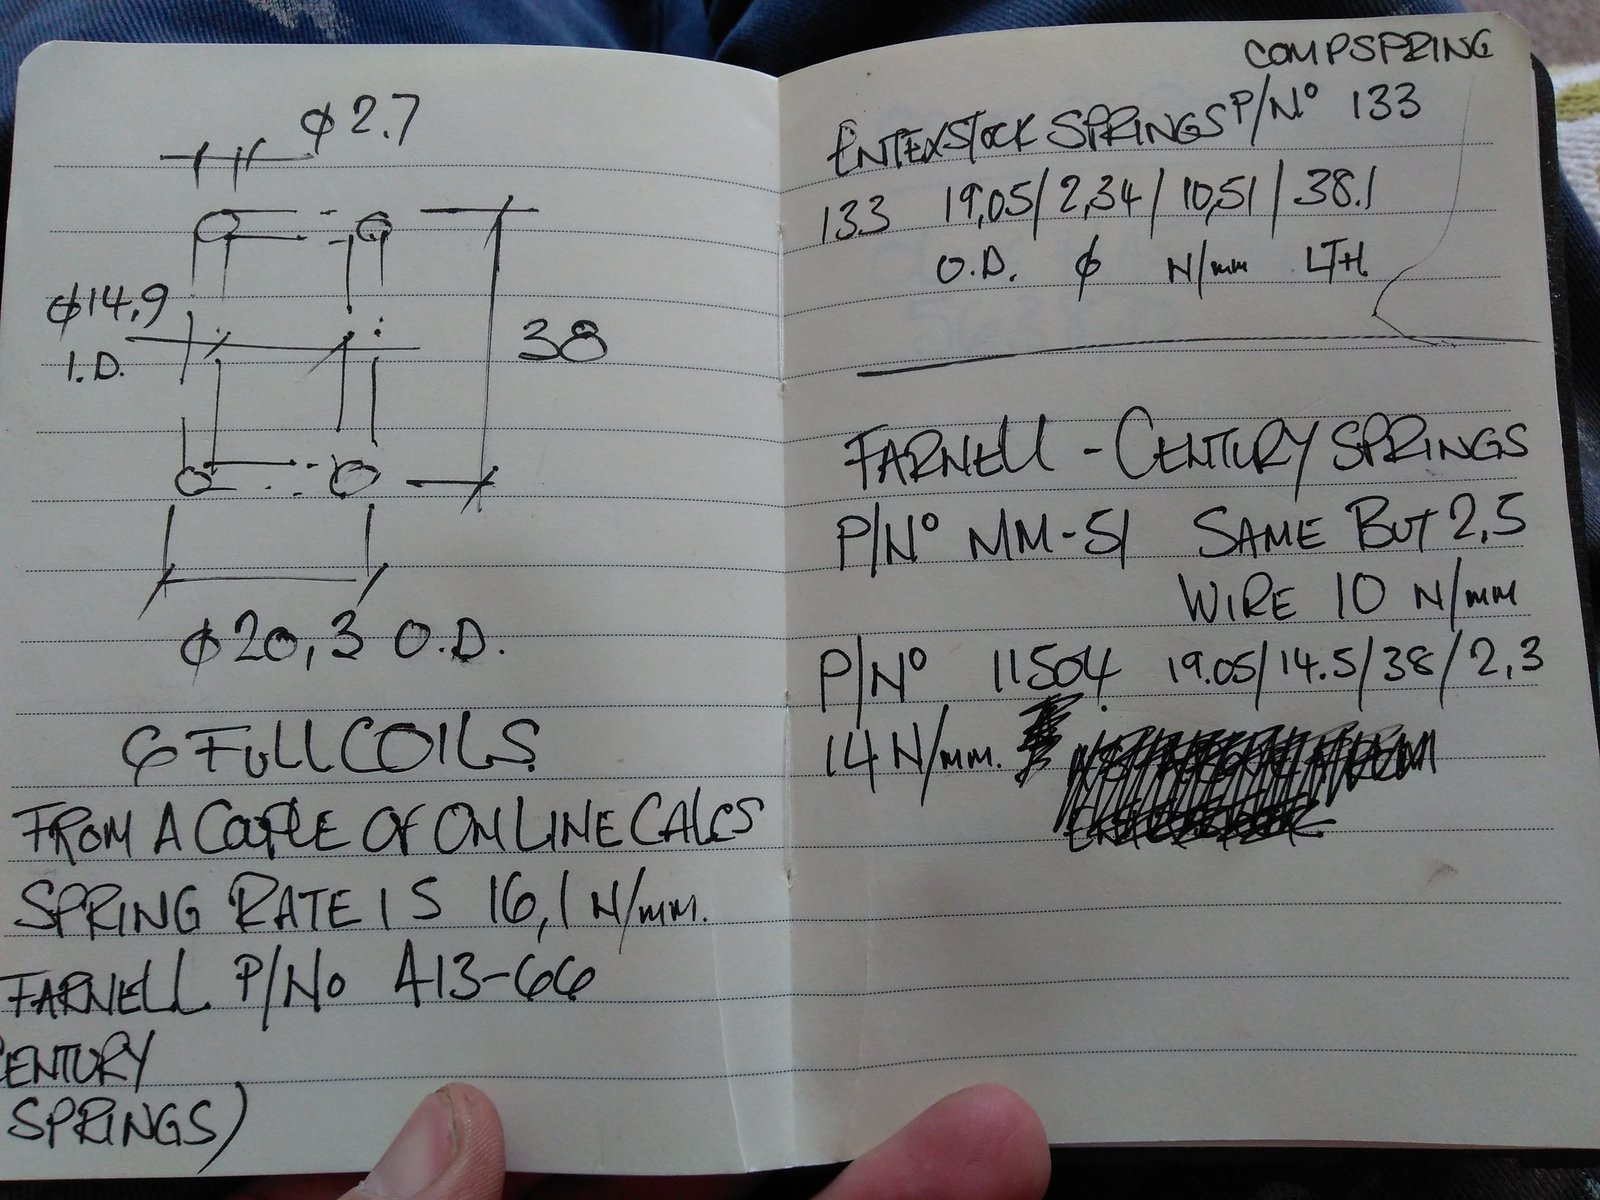 φ2.7
φ14,9
I.D.
38
φ20,3 O.D.
6 FULL COILS
FROM A COUPLE OF ONLINE CALCS
SPRING RATE IS 16,1 N/mm.
FARNELL P/No A13-66
CENTURY
SPRINGS)
COMPSPRING
ENTEXSTOCK SPRINGS P/Nº 133
133 19,05/2,34/10,51/38.1
O.D. φ N/mm LTH.
FARNELL - CENTURY SPRINGS
P/Nº MM-51 SAME BUT 2,5
WIRE 10 N/mm
P/Nº 11504 19.05/14.5/38/2,3
14 N/mm.